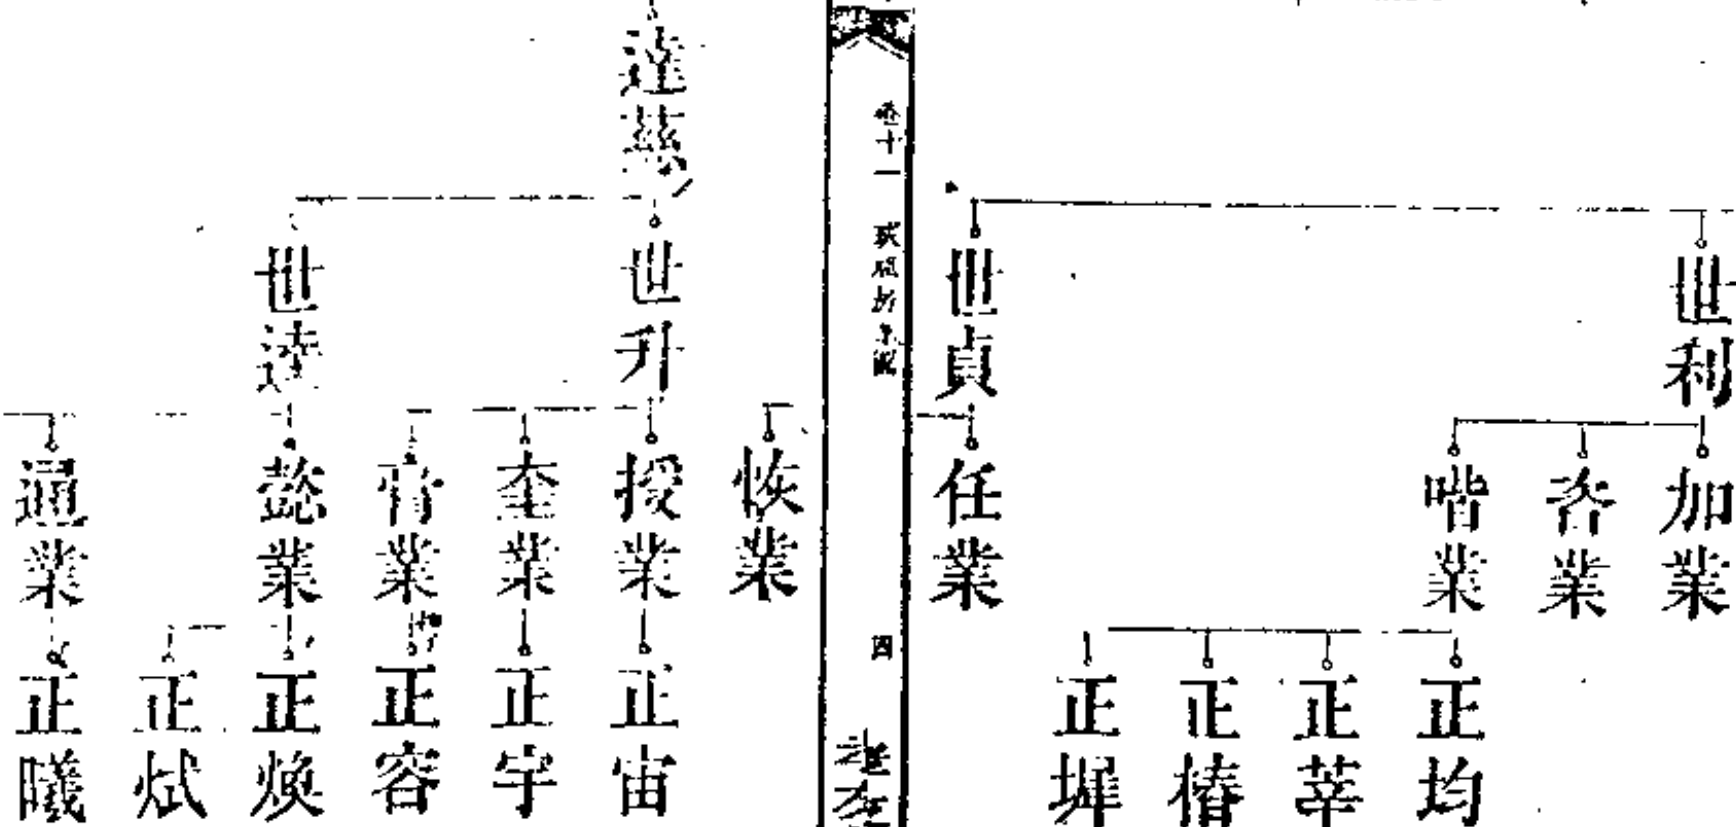 世利
加業
咨業
喈業
正均
正莘
正椿
正墀
世貞
任業
卷十一
四
恢業
達慈
世升
授業
正宙
奎業
正宇
膏業
正容
世逵
懿業
正煥
正斌
通業
正曦